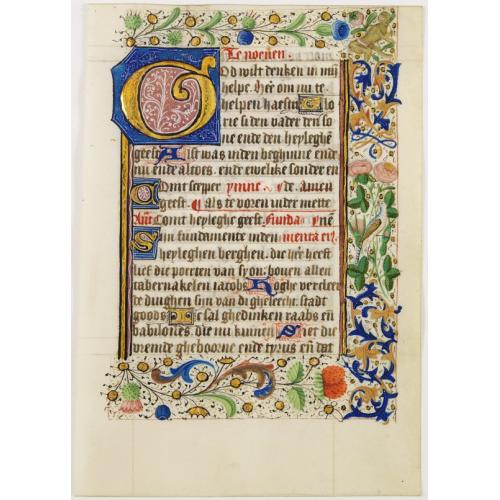 Te noenen.
God wilt denken in mij
helpe. here om mi te
helpen haesti Glo
rie si den vader den so
ne ende den heyleghen
geest Alst was inden beghinne ende
nu ende altoes. ende ewelike sonder en
Comt scepper ymne. de. amen
geest. als te voren inder mette
Ant Comt heyleghe geest. Funda
Sijn fundamente inden menta eius
heyleghen berghen. die here heeft
lief die poorten van syon: boven allen
tabernakelen iacobs Hoghe verclaer
te dinghen sijn van di gheseecht. stadt
goods Ic sal ghedinken raabs en
babilones. die mi kunnen Siet die
vremde gheboorne ende tyrus en dat